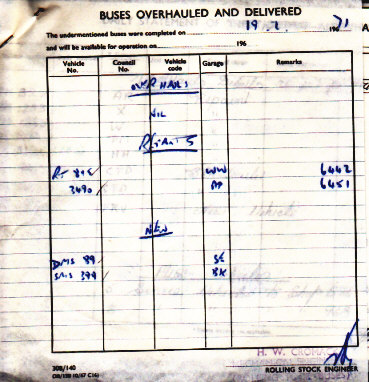 BUSES OVERHAULED AND DELIVERED
The undermentioned buses were completed on 19. 2. 196 71
and will be available for operation on 196
Vehicle No. Council No. Vehicle code Garage Remarks
OVERHAULS
NIL
RT 815 WW 6442
3490 AP 6451
NEW
DMS 89 SE
SMS 399 BK
H. W. CROMA
ROLLING STOCK ENGINEER
308/140